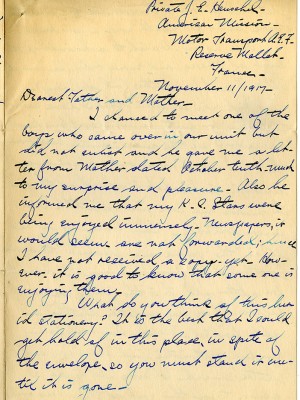 Private J. E. Henschel
American Mission -
Motor Transport A.E.F.
Reserve Mallet -
France -
November 11/1917 -
Dearest Father and Mother -
I chanced to meet one of the
boys who came over in our unit but
did not enlist and he gave me a let-
ter from Mother dated October tenth - much
to my surprise and pleasure - Also he
informed me that my K. C. Stars were
being enjoyed immensely - Newspapers, it
would seem are not forwarded; hence
I have not received a copy yet - How-
ever it is good to know that some one is
enjoying them.
What do you think of this
stationery? It is the best that I could
get hold of in this place, in spite of
the envelope, so you must stand it un-
til it is gone -